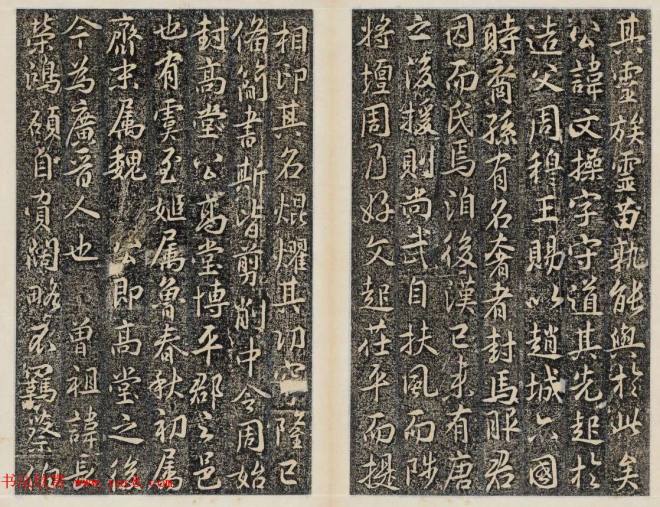 其靈族靈苗孰能與於此矣
公諱文操字守道其先起於
造父周穆王賜以趙城六國
時裔孫有名奢者封馬服君
因而氏焉洎後漢已来有唐
之後援則尚武自扶風而陟
将壇周乃好文起茌平而提
相印其名焜耀其功穹隆已
俻简書斯皆剪削中令周始
封高堂公高堂博平郡之邑
也有虞至姬属魯春秋初属
齊末属魏 公即高堂之後
今為廣晉人也 曽祖諱長
榮鴻碩自賁闊略不羈蔡伯